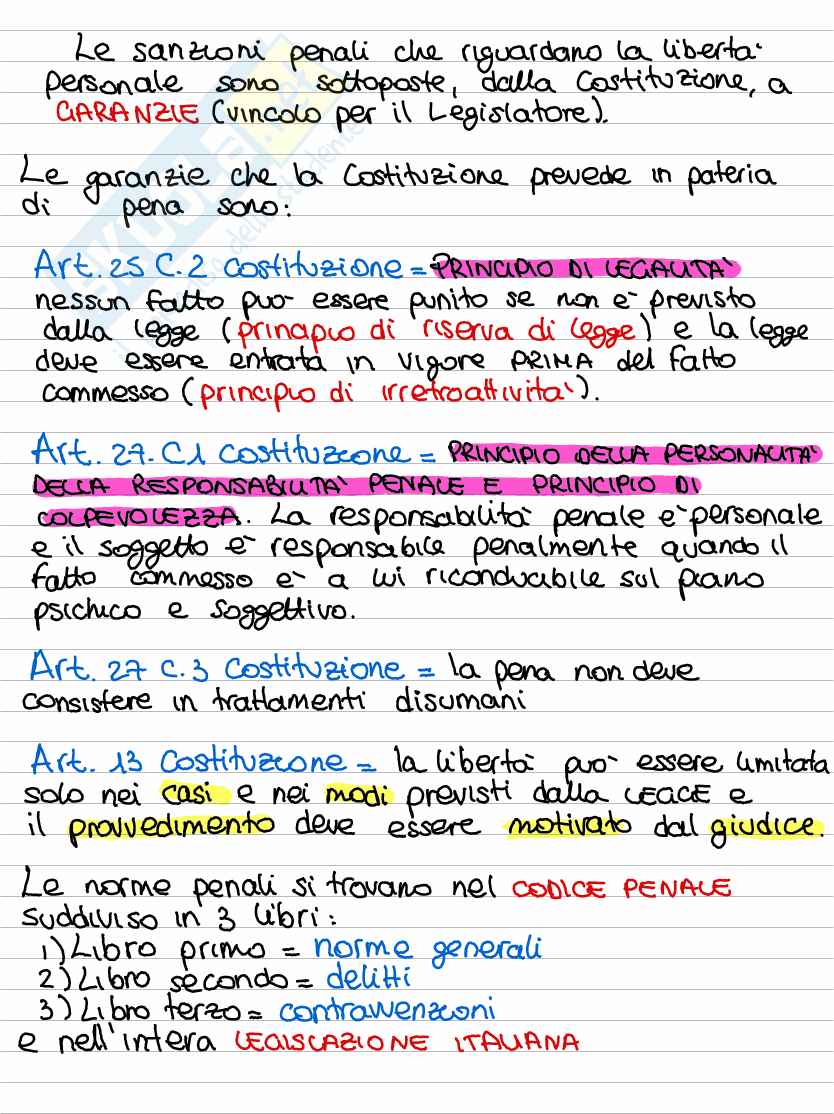 Le sanzioni penali che riguardano la libertà
personale sono sottoposte, dalla Costituzione, a
GARANZIE (vincolo per il Legislatore).
Le garanzie che la Costituzione prevede in pateria
di pena sono:
Art. 25 C.2 Costituzione = PRINCIPIO DI LEGALITÀ
nessun fatto può essere punito se non è previsto
dalla legge (principio di riserva di legge) e la legge
deve essere entrata in vigore PRIMA del fatto
commesso (principio di irretroattività).
Art. 27. C1 Costituzione = PRINCIPIO DELLA PERSONALITÀ
DELLA RESPONSABILITÀ PENALE E PRINCIPIO DI
COLPEVOLEZZA. La responsabilità penale è personale
e il soggetto è responsabile penalmente quando il
fatto commesso è a lui riconducibile sul piano
psichico e soggettivo.
Art. 27 C.3 Costituzione = la pena non deve
consistere in trattamenti disumani
Art. 13 Costituzione = la libertà può essere limitata
solo nei casi e nei modi previsti dalla LEGGE e
il provvedimento deve essere motivato dal giudice.
Le norme penali si trovano nel CODICE PENALE
suddiviso in 3 libri:
1) Libro primo = norme generali
2) Libro secondo = delitti
3) Libro terzo = contravvenzioni
e nell'intera LEGISLAZIONE ITALIANA